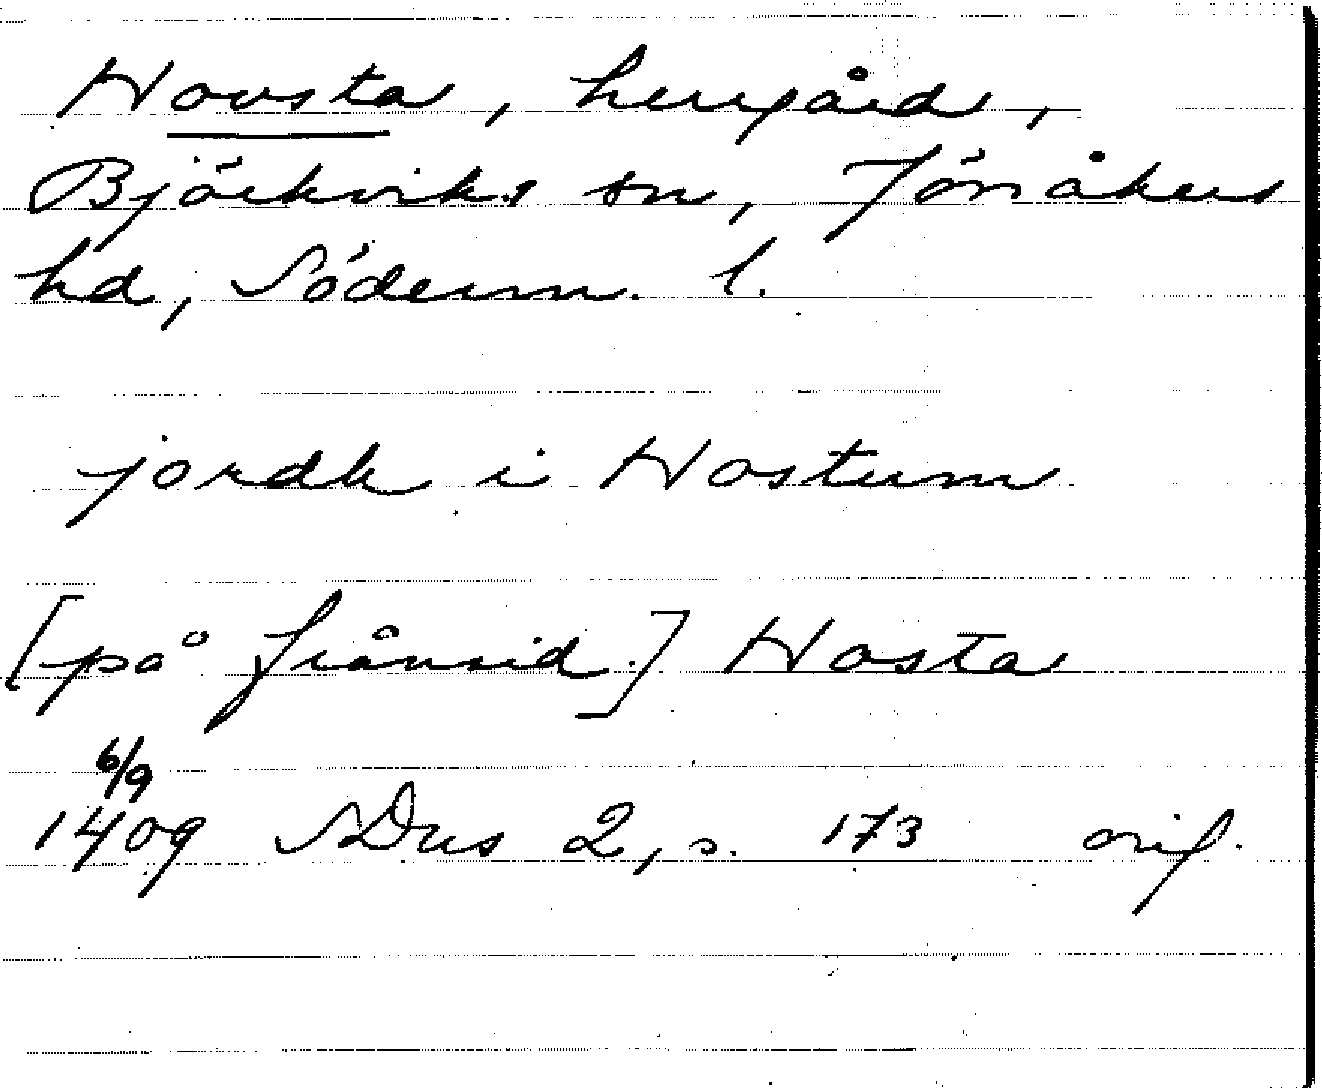 Hovsta, herrgård,
Björkviks sn, Jönåkers
hd, Söderm. l.
jordh i Hostum
[på frånsid.] Hosta
6/9
1409 SDns 2, s. 173 orig.